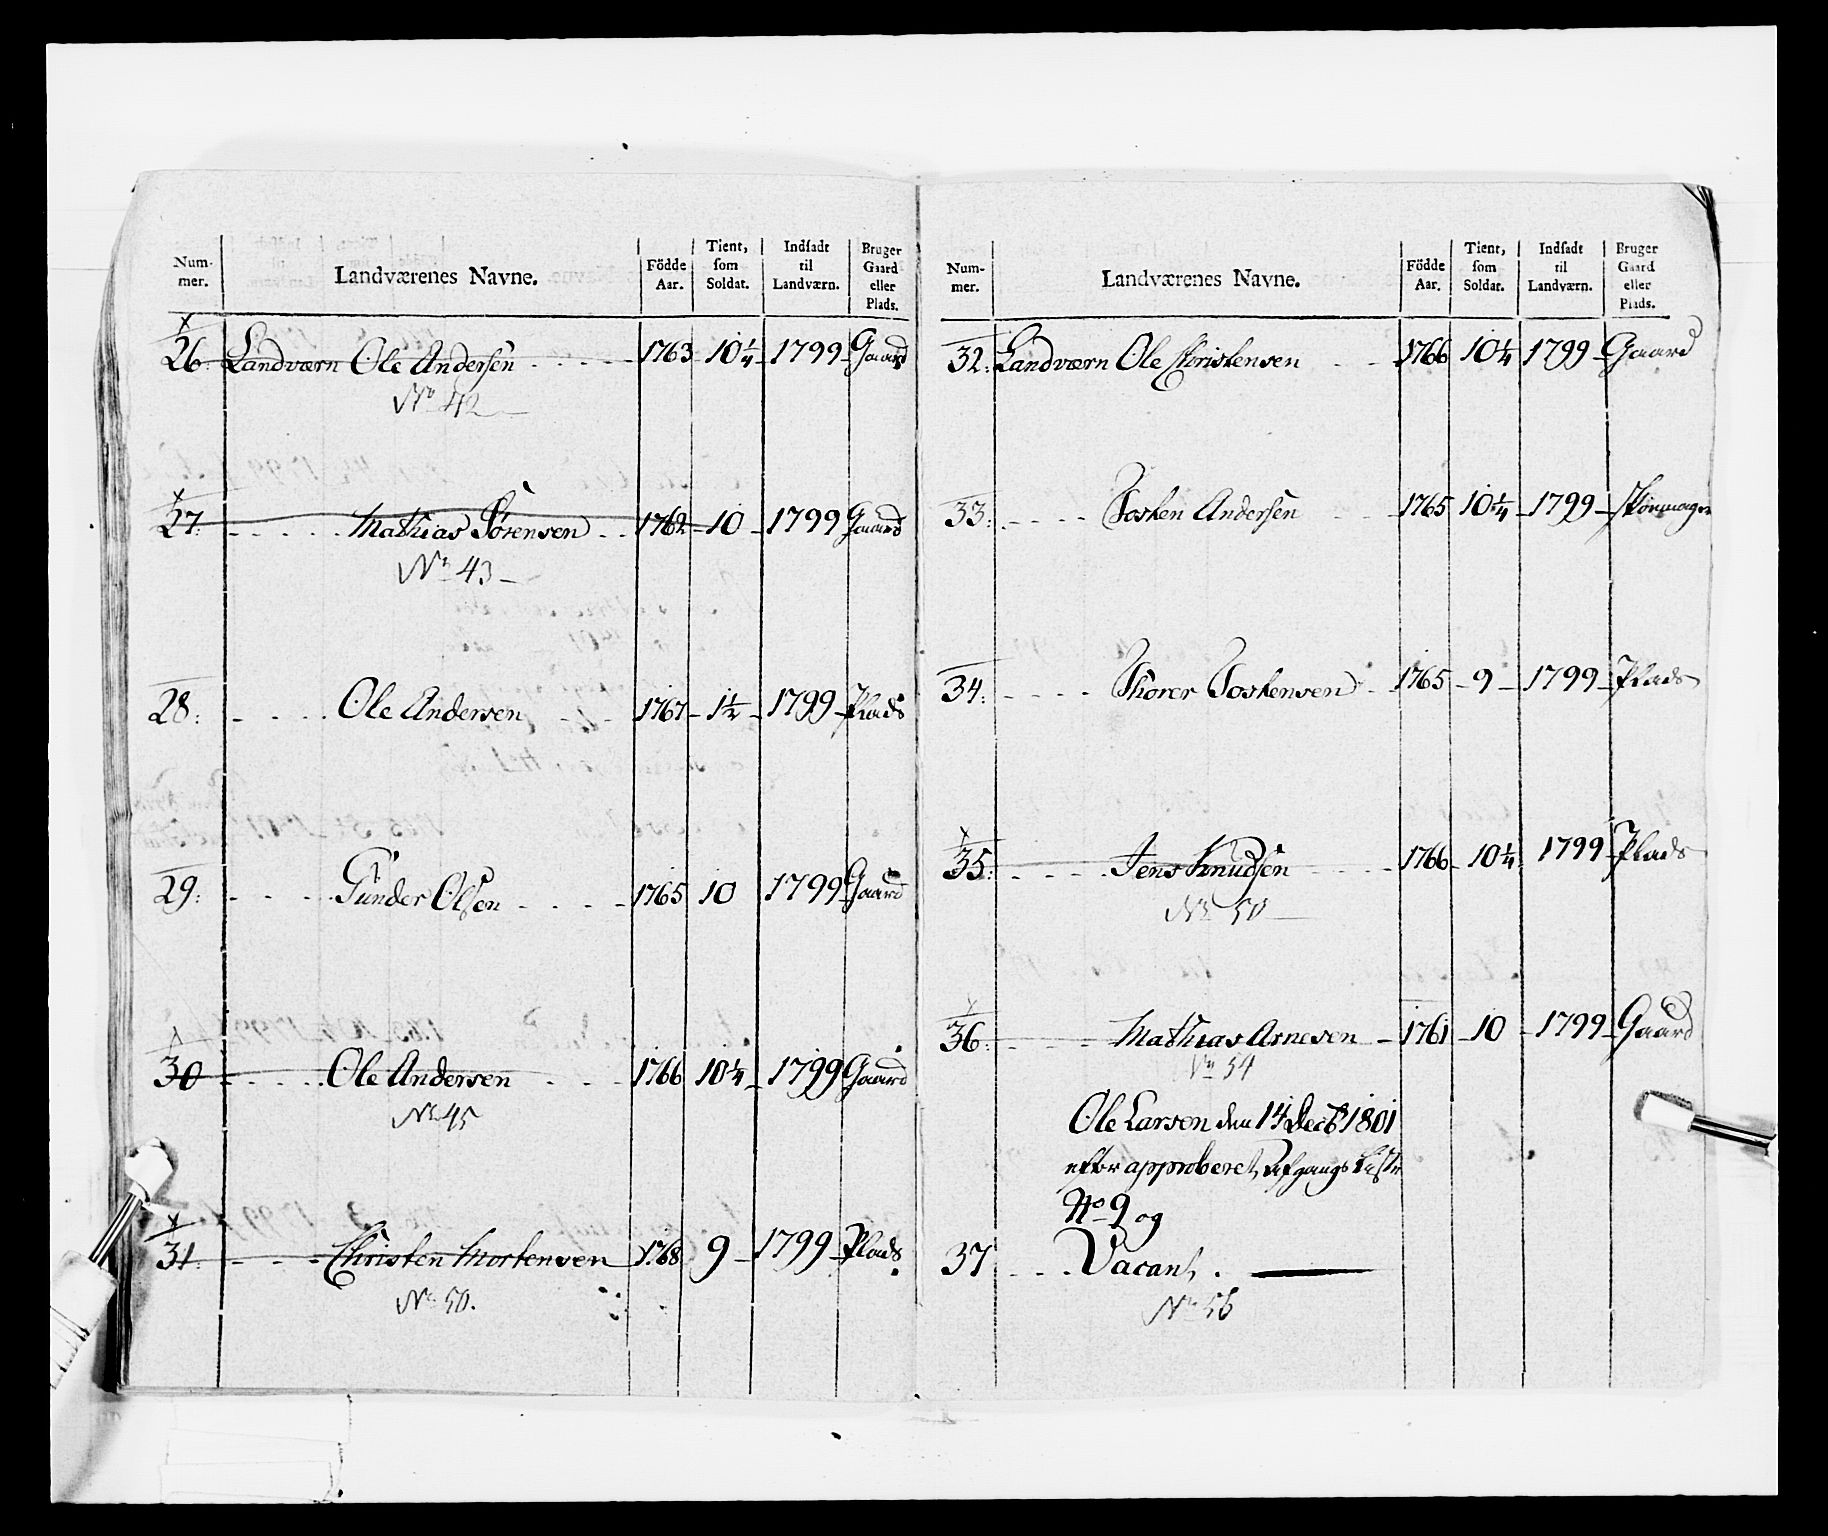 Num- mer. Landværenes Navne. Födde Aar. Tient, som Soldat. Indsadt til Landværn. Bruger Gaard eller Plads.
26. Landværn Ole Andersen 1763 10 1/4 1799 Gaard
No 42
27. Mathias Sørensen 1762 10 1799 Gaard
No 43
28. Ole Andersen 1767 1 1/2 1799 Plads
29. Gunder Olsen 1765 10 1799 Gaard
30 Ole Andersen 1766 10 1/4 1799 Gaard
No 45
31. Christen Mortensen 1768 9 1799 Plads
No 50.
Num- mer. Landværenes Navne. Födde Aar. Tient, som Soldat. Indsadt til Landværn. Bruger Gaard eller Plads.
32. Landværn Ole Christensen 1766 10 1/4 1799 Gaard
33. Tosten Andersen 1765 10 1/4 1799
34. Thorer Tostensen 1765 9 1799 Plads
35. Jens Knudsen 1766 10 1/4 1799 Plads
No 50
36. Mathias Arnesen 1761 10 1799 Gaard
No 54
Ole Larsen den 14 Decbr 1801
efter approberet Afgangs Liste
No 9 og
37 Vacant.
No 56